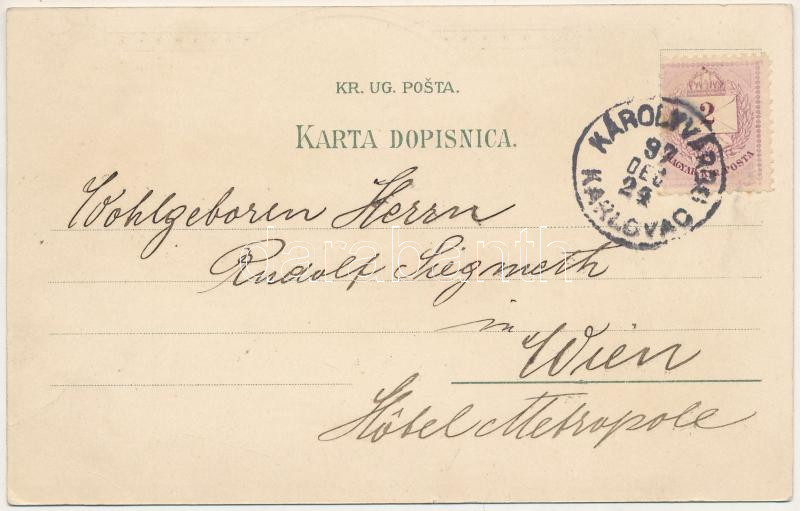 KR. UG. POŠTA.
KARTA DOPISNICA.
2
MAGYAR KIR. POSTA
KÁROLYVÁROS
97
DEC
24
KARLOVAC
Wohlgeboren Herrn
Rudolf Siegmeth
in
Wien
Hôtel Metropole
darabanth